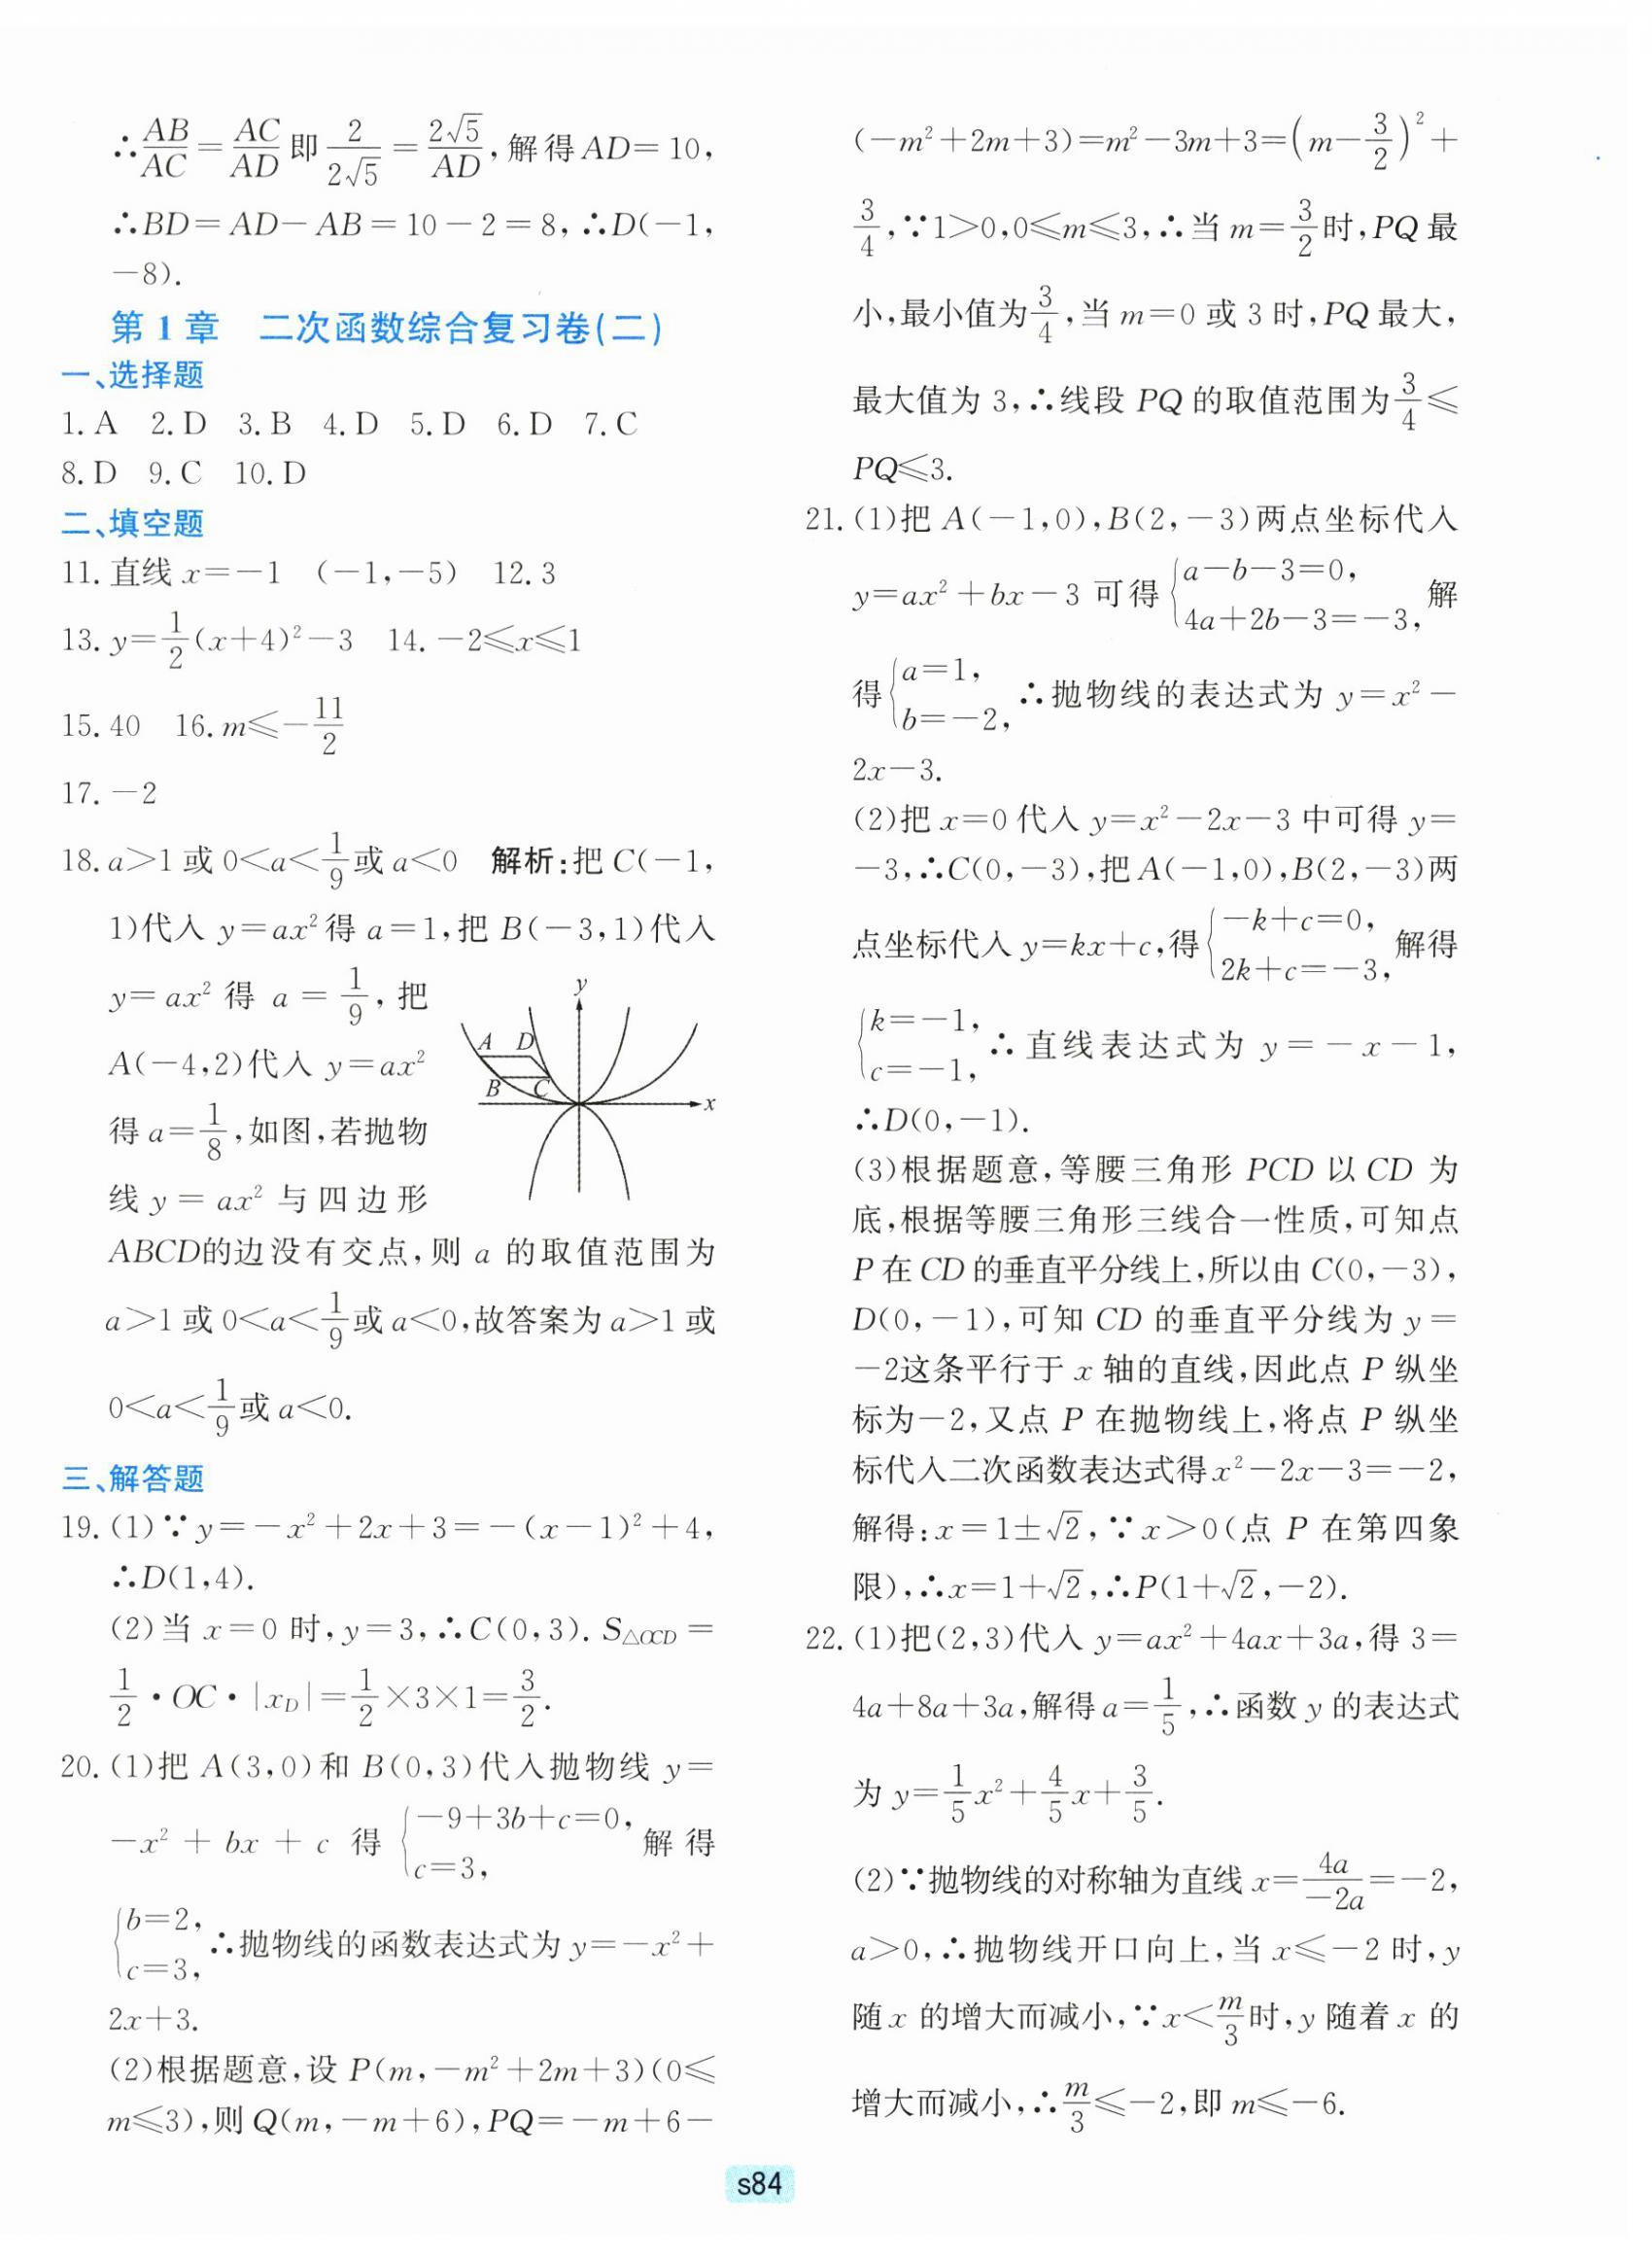 ∴AB/AC=AC/AD即2/2√5=2√5/AD,解得AD=10,
∴BD=AD-AB=10-2=8,∴D(-1,
-8).
第1章 二次函数综合复习卷(二)
一、选择题
1.A 2.D 3.B 4.D 5.D 6.D 7.C
8.D 9.C 10.D
二、填空题
11.直线x=-1 (-1,-5) 12.3
13.y=1/2(x+4)²-3 14.-2≤x≤1
15.40 16.m≤-11/2
17.-2
18.a>1或0<a<1/9或a<0 解析:把C(-1,
1)代入y=ax²得a=1,把B(-3,1)代入
y=ax²得a=1/9,把
A(-4,2)代入y=ax²
得a=1/8,如图,若抛物
线y=ax²与四边形
y
A D
B C
x
ABCD的边没有交点,则a的取值范围为
a>1或0<a<1/9或a<0,故答案为a>1或
0<a<1/9或a<0.
三、解答题
19.(1)∵y=-x²+2x+3=-(x-1)²+4,
∴D(1,4).
(2)当x=0时,y=3,∴C(0,3).S△OCD=
1/2·OC·|xD|=1/2×3×1=3/2.
20.(1)把A(3,0)和B(0,3)代入抛物线y=
-x²+bx+c得{-9+3b+c=0, c=3,解得
{b=2, c=3,∴抛物线的函数表达式为y=-x²+
2x+3.
(2)根据题意,设P(m,-m²+2m+3)(0≤
m≤3),则Q(m,-m+6),PQ=-m+6-
(-m²+2m+3)=m²-3m+3=(m-3/2)²+
3/4,∵1>0,0≤m≤3,∴当m=3/2时,PQ最
小,最小值为3/4,当m=0或3时,PQ最大,
最大值为3,∴线段PQ的取值范围为3/4≤
PQ≤3.
21.(1)把A(-1,0),B(2,-3)两点坐标代入
y=ax²+bx-3可得{a-b-3=0, 4a+2b-3=-3,解
得{a=1, b=-2,∴抛物线的表达式为y=x²-
2x-3.
(2)把x=0代入y=x²-2x-3中可得y=
-3,∴C(0,-3),把A(-1,0),B(2,-3)两
点坐标代入y=kx+c,得{-k+c=0, 2k+c=-3,解得
{k=-1, c=-1,∴直线表达式为y=-x-1,
∴D(0,-1).
(3)根据题意,等腰三角形PCD以CD为
底,根据等腰三角形三线合一性质,可知点
P在CD的垂直平分线上,所以由C(0,-3),
D(0,-1),可知CD的垂直平分线为y=
-2这条平行于x轴的直线,因此点P纵坐
标为-2,又点P在抛物线上,将点P纵坐
标代入二次函数表达式得x²-2x-3=-2,
解得:x=1±√2,∵x>0(点P在第四象
限),∴x=1+√2,∴P(1+√2,-2).
22.(1)把(2,3)代入y=ax²+4ax+3a,得3=
4a+8a+3a,解得a=1/5,∴函数y的表达式
为y=1/5x²+4/5x+3/5.
(2)∵抛物线的对称轴为直线x=4a/-2a=-2,
a>0,∴抛物线开口向上,当x≤-2时,y
随x的增大而减小,∵x<m/3时,y随着x的
增大而减小,∴m/3≤-2,即m≤-6.
s84